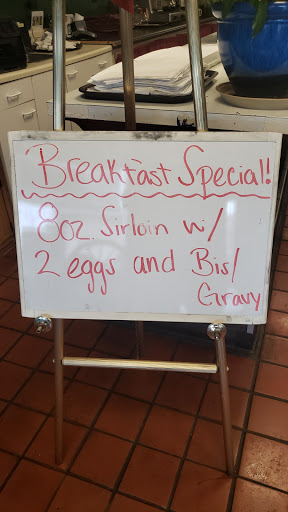 Breakfast Special!
8oz. Sirloin w/
2 eggs and Bis/
Gravy